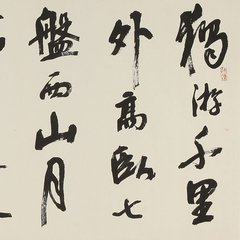 獨游千里
外高臥七
盤西山月